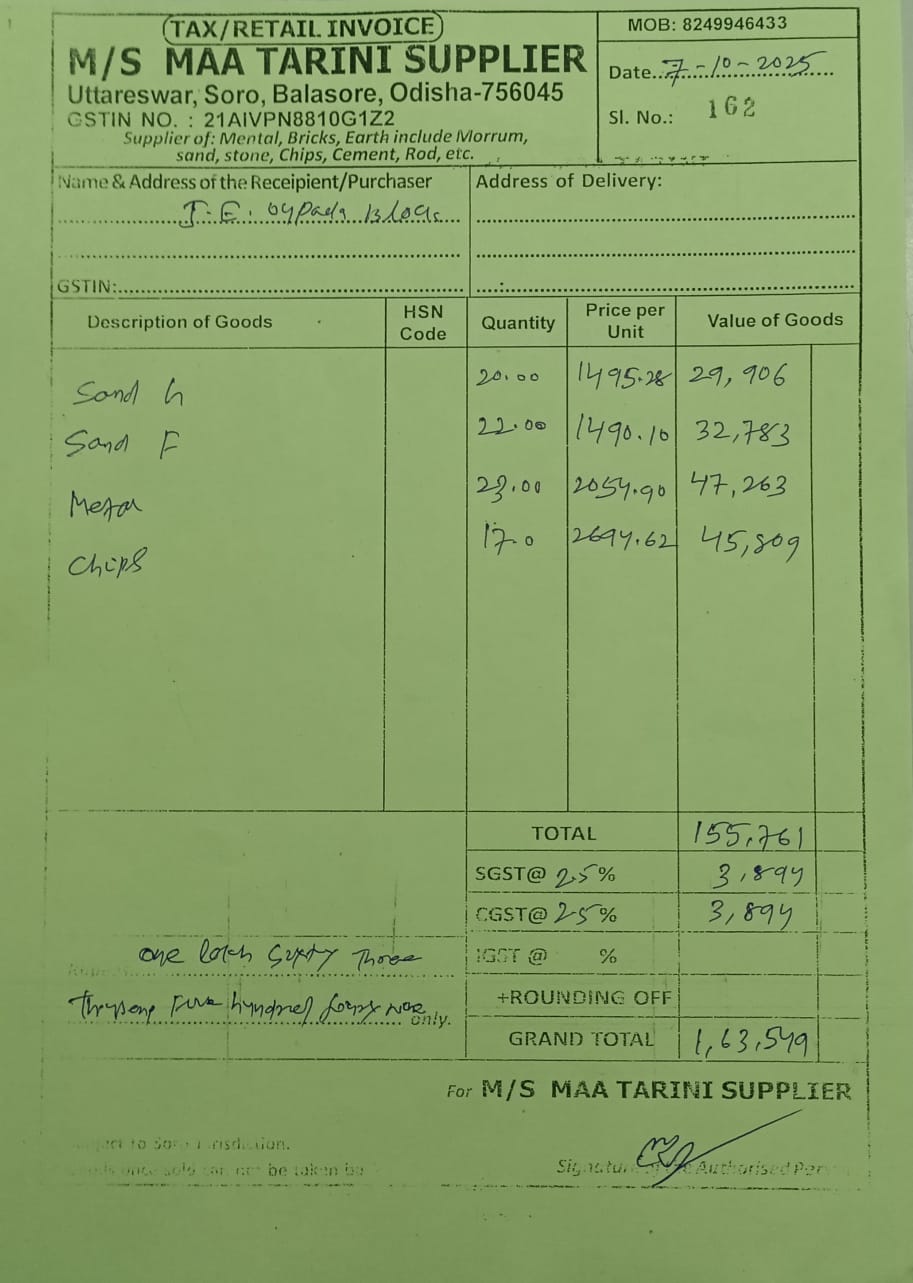 TAX/RETAIL INVOICE
MOB: 8249946433
M/S MAA TARINI SUPPLIER
Date..7-10-2025
Uttareswar, Soro, Balasore, Odisha-756045
GSTIN NO. : 21AIVPN8810G1Z2
Sl. No.: 162
Supplier of: Mental, Bricks, Earth include Morrum,
sand, stone, Chips, Cement, Rod, etc.
Name & Address of the Receipient/Purchaser
Address of Delivery:
J.E.
GSTIN:
Description of Goods HSN Code Quantity Price per Unit Value of Goods
Sand 20.00 1495.28 29,906
Sand F 22.00 1490.10 32,783
23.00 2054.90 47,263
Chips 17.0 2694.62 45,809
TOTAL 155,761
SGST@ 2.5% 3,894
CGST@ 2.5% 3,894
IGST @ %
one Three
hundred only.
+ROUNDING OFF
GRAND TOTAL 1,63,549
For M/S MAA TARINI SUPPLIER
once sold can not be taken
Authorised